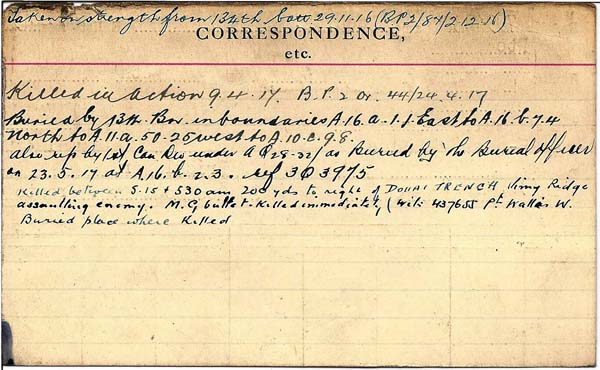 Taken on strength from 134th batt 29.11.16 (B.P.2/84/2.12.16)
CORRESPONDENCE,
etc.
Killed in action 9.4.17. B.P.2 Or. 44/24.4.17
Buried by 13th Bn. in boundaries A.16.a.1.1. East to A.16.b.7.4
North to A.11.a.50-25 west to A.10.c.9.8.
also rep by 1st Can Div under as Buried by the Burial Officer
on 23.5.17 at A.16.b.2.3. ref 303975
Killed between 5.15 + 530 am 200 yds to right of DOUAI TRENCH Vimy Ridge
assaulting enemy. M.G bullet - Killed immediately (Wit: 437655 Pt. W.
Buried place where Killed